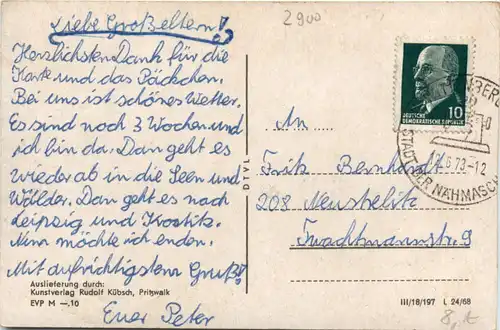 Liebe Großeltern!
Herzlichsten Dank für die
Karte und das Päckchen.
Bei uns ist schönes Wetter.
Es sind noch 3 Wochen und
ich bin da. Dan geht es
wieder ab in die Seen und
Wälder. Dan geht es nach
Leipzig und Krostitz.
Nun möchte ich enden.
Mit aufrichtigstem Gruß!
Euer Peter
Auslieferung durch:
Kunstverlag Rudolf Kübsch, Pritzwalk
EVP M —.10
DTVL
2900
DEUTSCHE
DEMOKRATISCHE REPUBLIK
10
73-12
STADT DER NÄHMASCH
An .....
Fritz Bernhardt
208 Neustrelitz
Twachtmannstr. 9
III/18/197 L 24/68